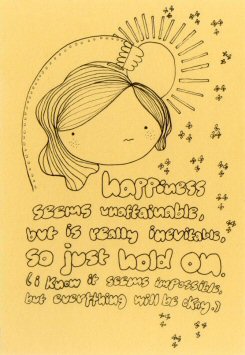 happiness
seems unattainable,
but is really inevitable,
so just hold on.
(i know it seems impossible,
but everything will be okay.)